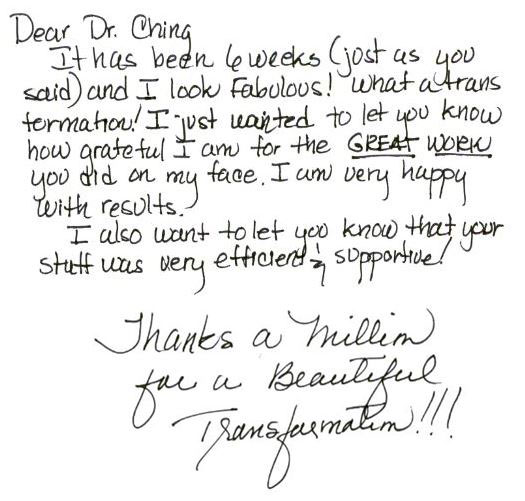 Dear Dr. Ching
It has been 6 weeks (just as you
said) and I look Fabulous! What a trans
formation! I just wanted to let you know
how grateful I am for the GREAT WORK
you did on my face. I am very happy
with results.
I also want to let you know that your
staff was very efficient & supportive!
Thanks a Million
for a Beautiful
Transformation!!!